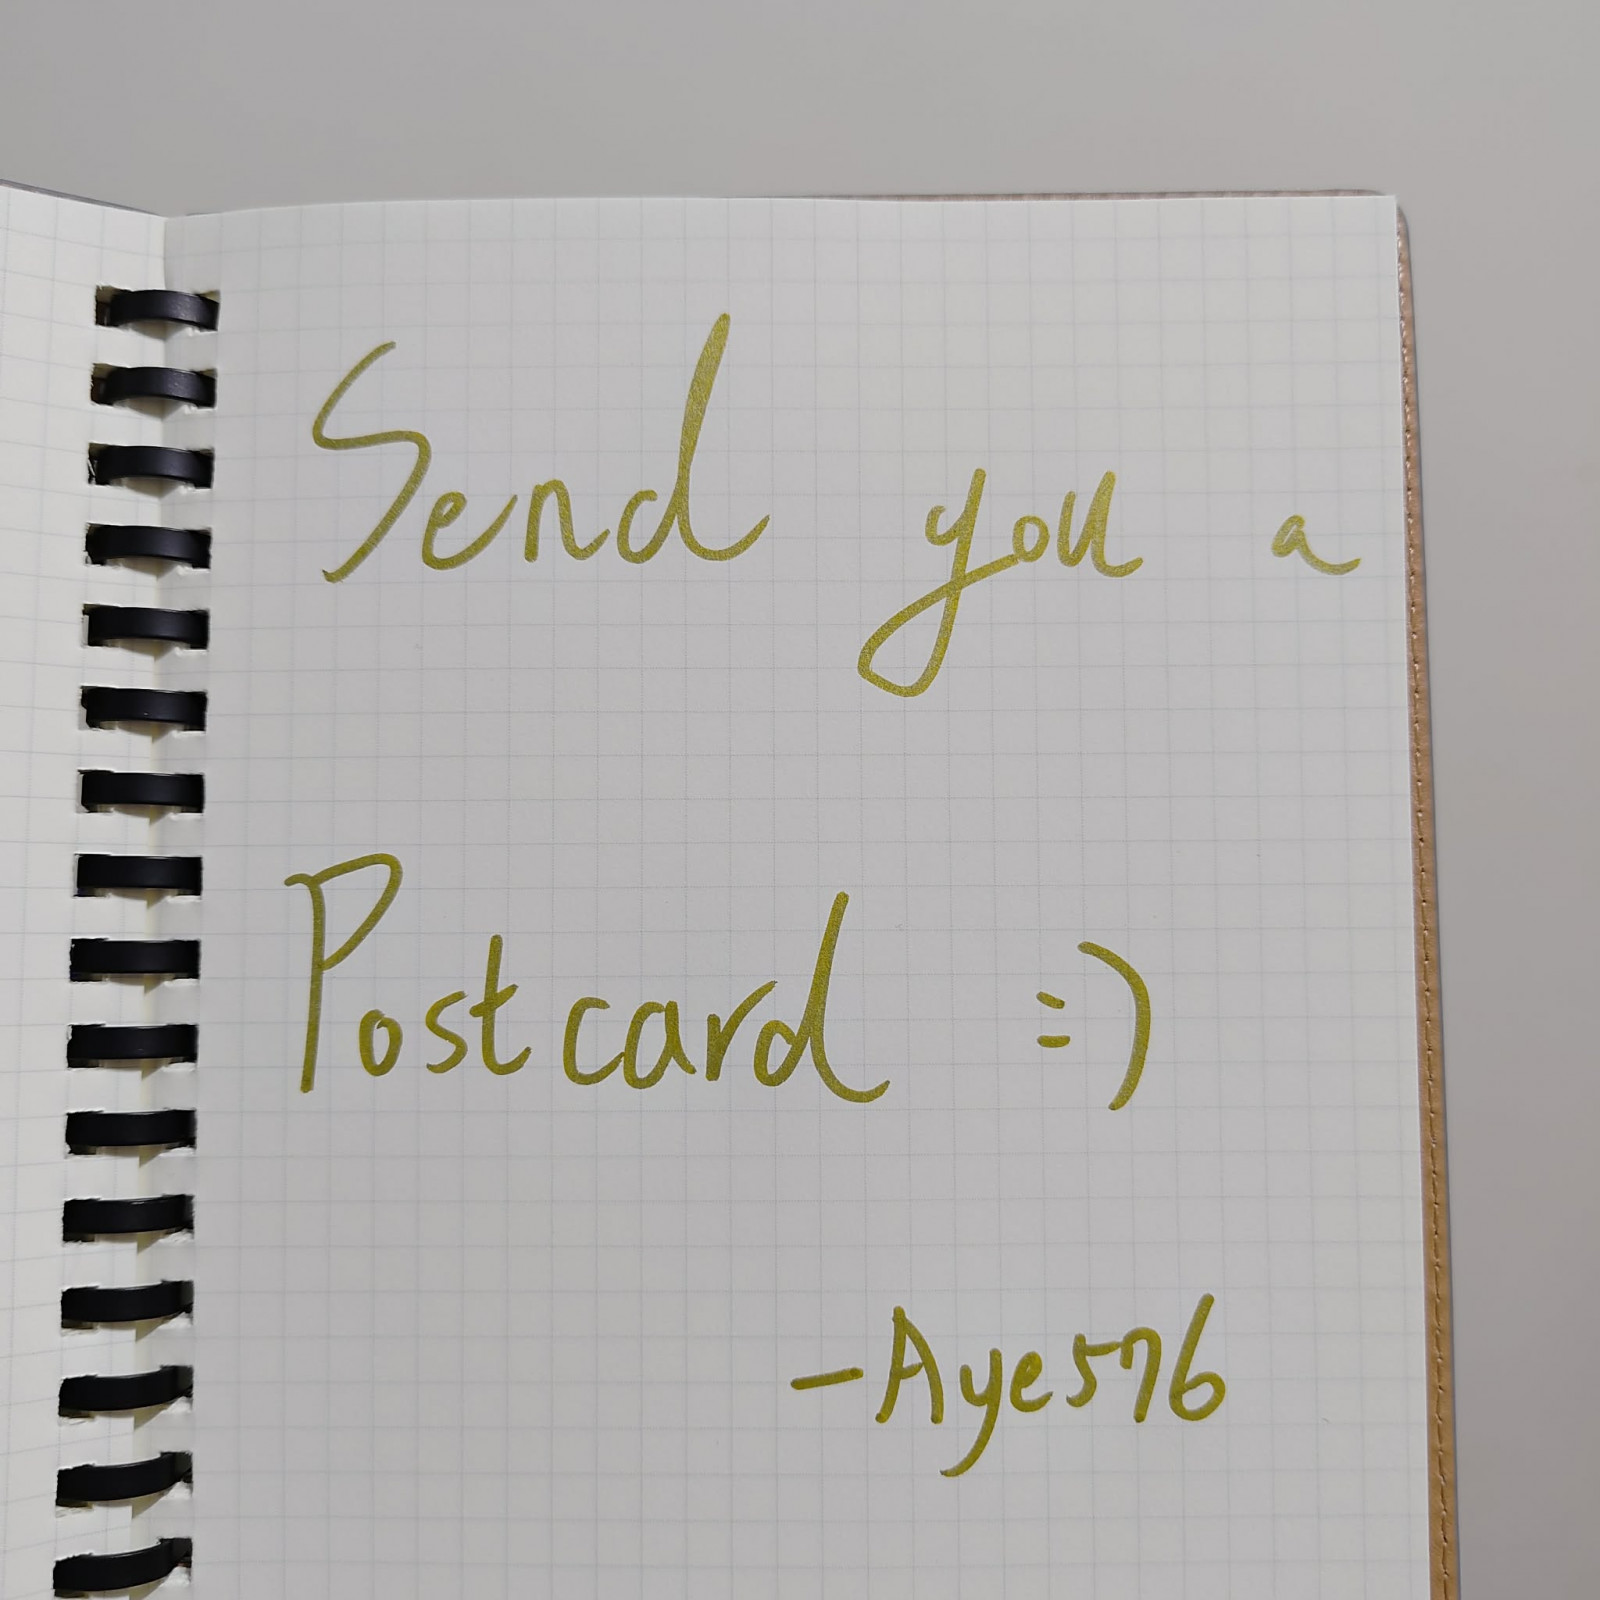 Send you a
Postcard :)
-Aye576